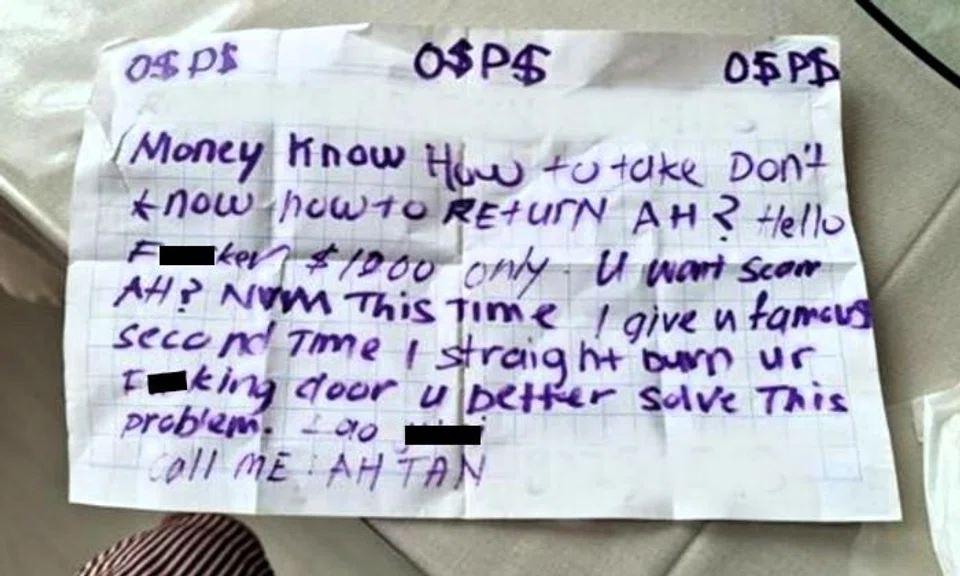 O$P$ O$P$ O$P$
Money Know How to take Don't
know how to RETURN AH? Hello
F ker $1200 only. U want scam
AH? NVM This Time I give u famous
second Time I straight burn ur
F king door u better solve This
problem.
Call ME: AH TAN